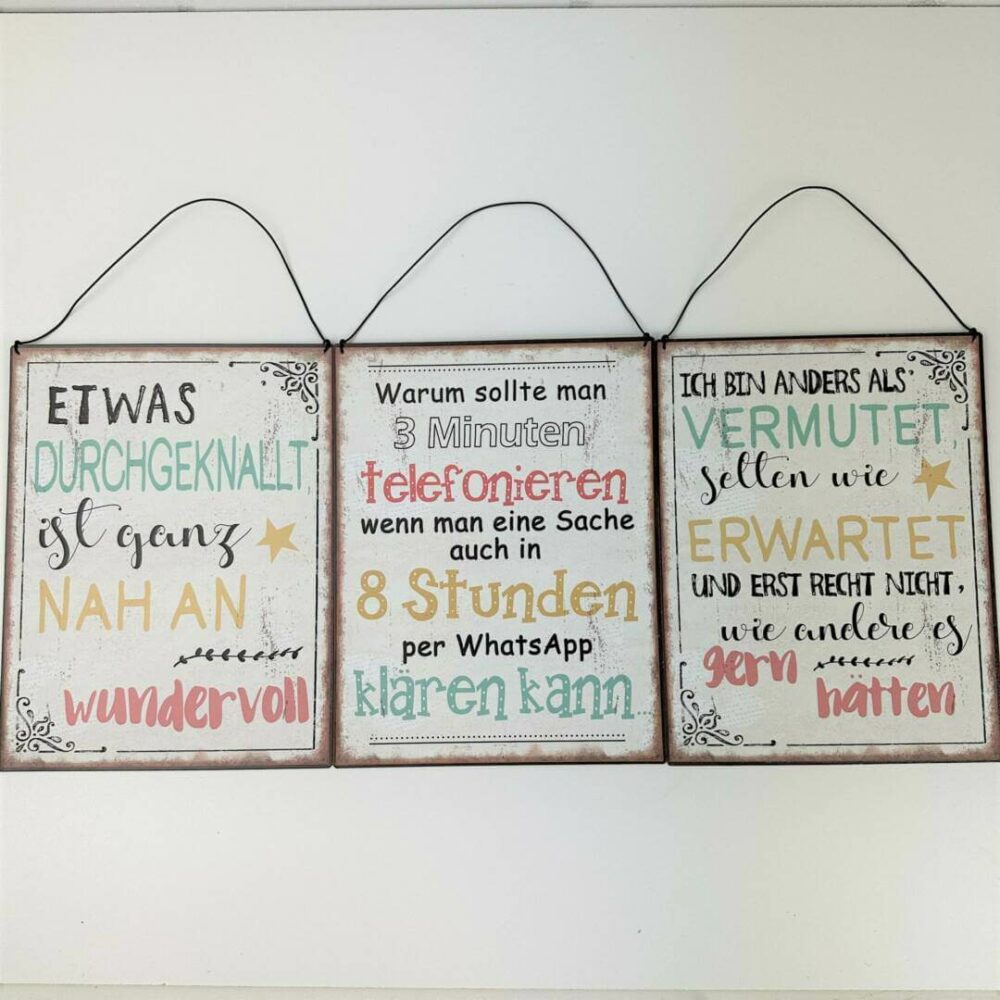 ETWAS
DURCHGEKNALLT
ist ganz
NAH AN
wundervoll
Warum sollte man
3 Minuten
telefonieren
wenn man eine Sache
auch in
8 Stunden
per WhatsApp
klären kann...
ICH BIN ANDERS ALS
VERMUTET,
selten wie
ERWARTET
UND ERST RECHT NICHT,
wie andere es
gern
hätten